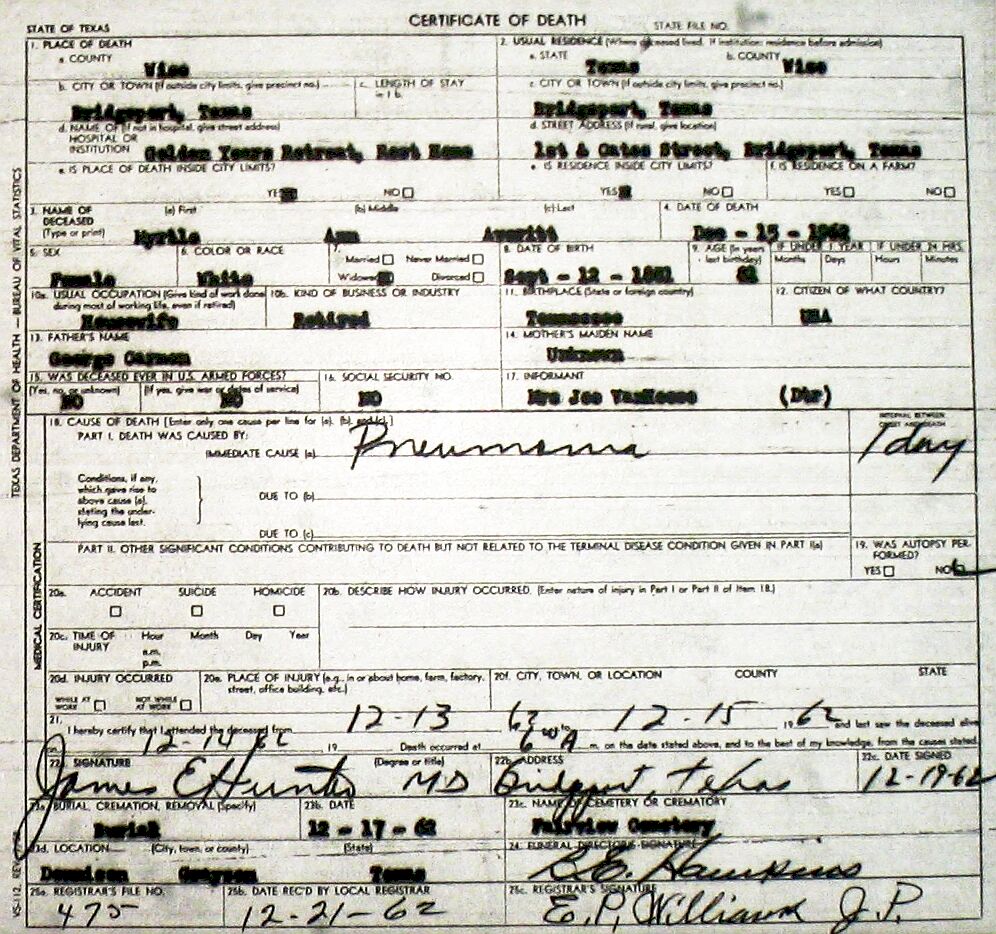 CERTIFICATE OF DEATH
STATE OF TEXAS STATE FILE NO.
1. PLACE OF DEATH
a. COUNTY
Wise
2. USUAL RESIDENCE (Where deceased lived. If institution: residence before admission)
a. STATE b. COUNTY
Texas Wise
b. CITY OR TOWN (If outside city limits, give precinct no.)
c. LENGTH OF STAY in 1 b.
Bridgeport, Texas
c. CITY OR TOWN (If outside city limits, give precinct no.)
Bridgeport, Texas
d. NAME OF (If not in hospital, give street address)
HOSPITAL OR
INSTITUTION Golden Years Retreat, Rest Home
d. STREET ADDRESS (If rural, give location)
1st & Cates Street, Bridgeport, Texas
e. IS PLACE OF DEATH INSIDE CITY LIMITS?
YES NO
e. IS RESIDENCE INSIDE CITY LIMITS?
YES NO
f. IS RESIDENCE ON A FARM?
YES NO
3. NAME OF DECEASED
(Type or print)
(a) First (b) Middle (c) Last
Myrtle Ann Averitt
4. DATE OF DEATH
Dec - 15 - 1962
5. SEX
Female
6. COLOR OR RACE
White
7.
Married Never Married
Widowed Divorced
8. DATE OF BIRTH
Sept - 12 - 1881
9. AGE (In years last birthday)
81
IF UNDER 1 YEAR IF UNDER 24 HRS.
Months Days Hours Minutes
10a. USUAL OCCUPATION (Give kind of work done
during most of working life, even if retired)
Housewife
10b. KIND OF BUSINESS OR INDUSTRY
Retired
11. BIRTHPLACE (State or foreign country)
Tennessee
12. CITIZEN OF WHAT COUNTRY?
USA
13. FATHER'S NAME
George Carmon
14. MOTHER'S MAIDEN NAME
Unknown
15. WAS DECEASED EVER IN U.S. ARMED FORCES?
(Yes, no, or unknown) (If yes, give war or dates of service)
NO NO
16. SOCIAL SECURITY NO.
NO
17. INFORMANT
Mrs Joe VanHoose (Dtr)
18. CAUSE OF DEATH [Enter only one cause per line for (a), (b), and (c).]
PART I. DEATH WAS CAUSED BY:
IMMEDIATE CAUSE (a) Pneumonia
INTERVAL BETWEEN
ONSET AND DEATH
1 day
Conditions, if any,
which gave rise to
above cause (a),
stating the under-
lying cause last.
DUE TO (b)
DUE TO (c)
PART II. OTHER SIGNIFICANT CONDITIONS CONTRIBUTING TO DEATH BUT NOT RELATED TO THE TERMINAL DISEASE CONDITION GIVEN IN PART I(a)
19. WAS AUTOPSY PER-
FORMED?
YES NO
20a. ACCIDENT SUICIDE HOMICIDE
20b. DESCRIBE HOW INJURY OCCURRED. (Enter nature of injury in Part I or Part II of Item 18.)
20c. TIME OF INJURY
Hour Month Day Year
a.m.
p.m.
20d. INJURY OCCURRED
WHILE AT WORK NOT WHILE AT WORK
20e. PLACE OF INJURY (e.g., in or about home, farm, factory,
street, office building, etc.)
20f. CITY, TOWN, OR LOCATION COUNTY STATE
21. I hereby certify that I attended the deceased from 12-13 62 to 12-15 1962 and last saw the deceased alive
on 12-14 62 19 Death occurred at 6 A m. on the date stated above, and to the best of my knowledge, from the causes stated.
22a. SIGNATURE (Degree or title)
James E Hunter MD
22b. ADDRESS
Bridgeport, Texas
22c. DATE SIGNED
12-19-62
23a. BURIAL, CREMATION, REMOVAL (Specify)
Burial
23b. DATE
12 - 17 - 62
23c. NAME OF CEMETERY OR CREMATORY
Fairview Cemetery
23d. LOCATION (City, town, or county) (State)
Dennison Grayson Texas
24. FUNERAL DIRECTOR'S SIGNATURE
Hawkins
25a. REGISTRAR'S FILE NO.
475
25b. DATE REC'D BY LOCAL REGISTRAR
12-21-62
25c. REGISTRAR'S SIGNATURE
E. P. Williams J.P.
TEXAS DEPARTMENT OF HEALTH — BUREAU OF VITAL STATISTICS
MEDICAL CERTIFICATION
VS-112, REV.